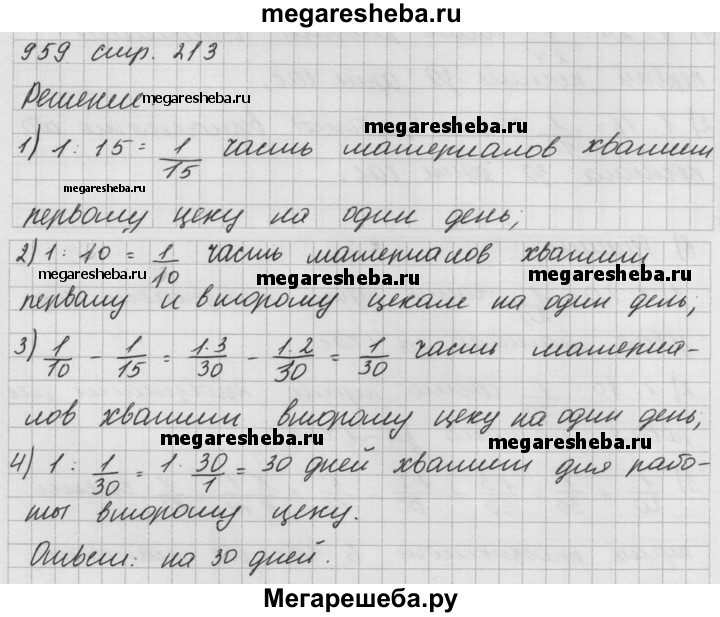 megaresheba.ru
959 стр. 213
Решение megaresheba.ru
megaresheba.ru
1) 1 : 15 = 1/15 часть материалов хватит
megaresheba.ru
первому цеху на один день;
2) 1 : 10 = 1/10 часть материалов хватит
megaresheba.ru megaresheba.ru megaresheba.ru
первому и второму цехам на один день;
3) 1/10 - 1/15 = 1·3/30 - 1·2/30 = 1/30 часть материа-
лов хватит второму цеху на один день,
megaresheba.ru megaresheba.ru
4) 1 : 1/30 = 1 · 30/1 = 30 дней хватит для рабо-
ты второму цеху.
Ответ: на 30 дней.
megaresheba.ru megaresheba.ru
Мегарешеба.ру